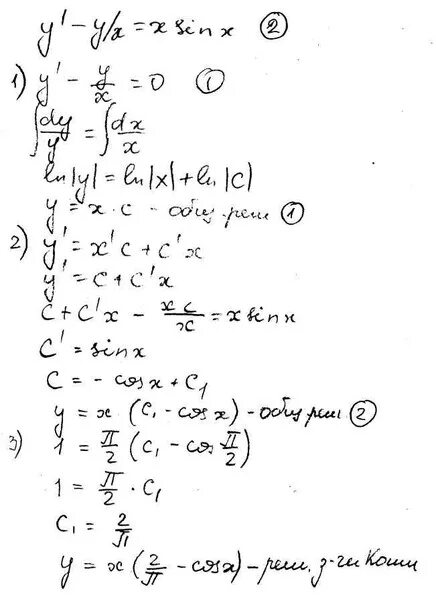 y' - y/x = x sin x ②
1) y' - y/x = 0 ①
∫dy/y = ∫dx/x
ln|y| = ln|x| + ln|C|
y = x · c - общ. реш ①
2) y' = x'c + c'x
y' = c + c'x
c + c'x - xc/x = x sin x
c' = sin x
c = - cos x + C₁
y = x (C₁ - cos x) - общ реш ②
3) 1 = π/2 (C₁ - cos π/2)
1 = π/2 · C₁
C₁ = 2/π
y = x (2/π - cos x) - реш. з-чи Коши